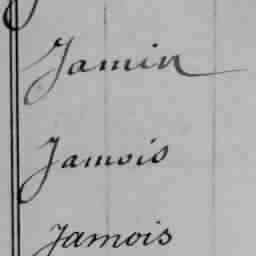 Jamin
Jamois
Jamois